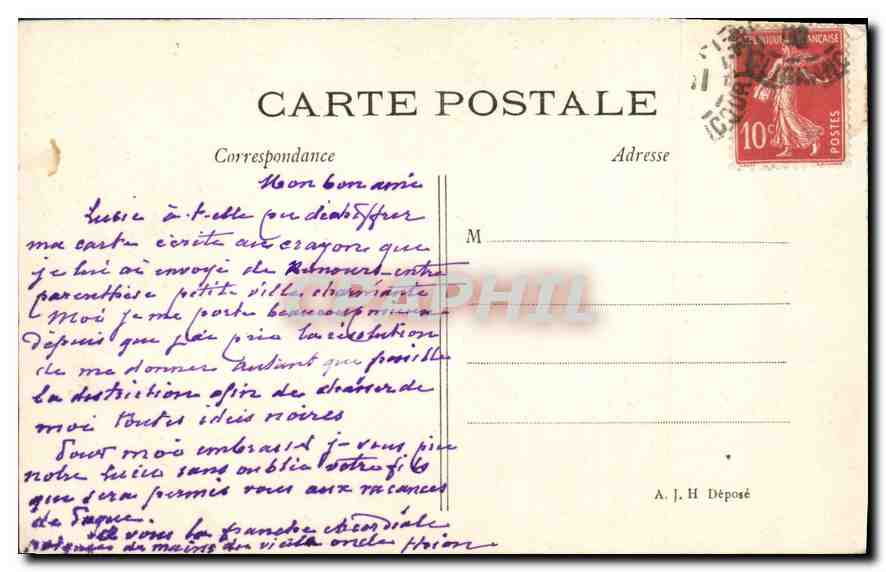 CARTE POSTALE
Correspondance
Adresse
RÉPUBLIQUE FRANÇAISE
10c
POSTES
Mon bon ami
Lucie à-t-elle pu déchiffrer
ma carte écrite au crayon que
je lui ai envoyé de entre
parenthèse petite ville charmante
Moi je me porte beaucoup mieux
depuis que j'ai pris la résolution
de me donner autant que possible
la distriction afin de chasser de
moi toutes idées noires
Pour moi embrassé je vous prie
notre Lucie sans oublié votre fils
que sera permis vous aux vacances
de Paque.
A vous la franche et cordiale
poignées de mains du vieil oncle
M
A. J. H Déposé
CPAPHIL